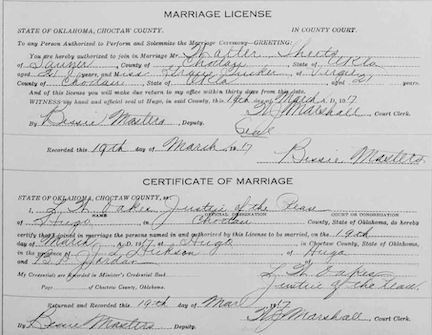 MARRIAGE LICENSE
STATE OF OKLAHOMA, CHOCTAW COUNTY. IN COUNTY COURT.
To any Person Authorized to Perform and Solemnize the Marriage Ceremony—GREETING:
You are hereby authorized to join in Marriage Mr. Walter Sheets
of County of Choctaw, State of Okla
aged years, and Miss of Virgil
County of Choctaw State of Okla aged 21 years.
And of this license you will make due return to my office within thirty days from this date.
WITNESS my hand and official seal at Hugo, in said County, this 19th day of March A. D. 1917
W J Marshall, Court Clerk.
By Bessie Masters, Deputy. Seal
Recorded this 19th day of March 1917 Bessie Masters
CERTIFICATE OF MARRIAGE
STATE OF OKLAHOMA, CHOCTAW COUNTY,
I, Oakes Justice of the Peace
NAME OFFICIAL DESIGNATION COURT OR CONGREGATION
of Hugo in Choctaw County, State of Oklahoma, do hereby
certify that I joined in marriage the persons named in and authorized by this License to be married, on the 19th
day of March A. D. 1917, at Hugo, in Choctaw County, State of Oklahoma,
in the presence of Hickson of Hugo
and Jordan
My Credentials are Recorded in Minister's Credential Book Oakes
Page of Choctaw County, Oklahoma. Justice of the Peace
Returned and Recorded this 19th day of Mar 1917
By Bessie Masters, Deputy. W J Marshall, Court Clerk.